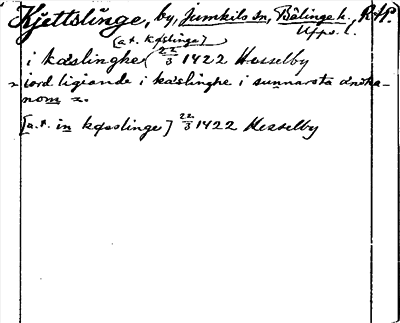 Kjettslinge, by, Jumkils sn, Bälinge h., RAP.
Upps. l.
(a.t. kæslinge)
i kæslinghe 22/3 1422 Hesselby
~ iord ligiande i kæslinghe i sunnarsta
nom ~.
[a.t. in kæslinge] 22/3 1422 Hesselby